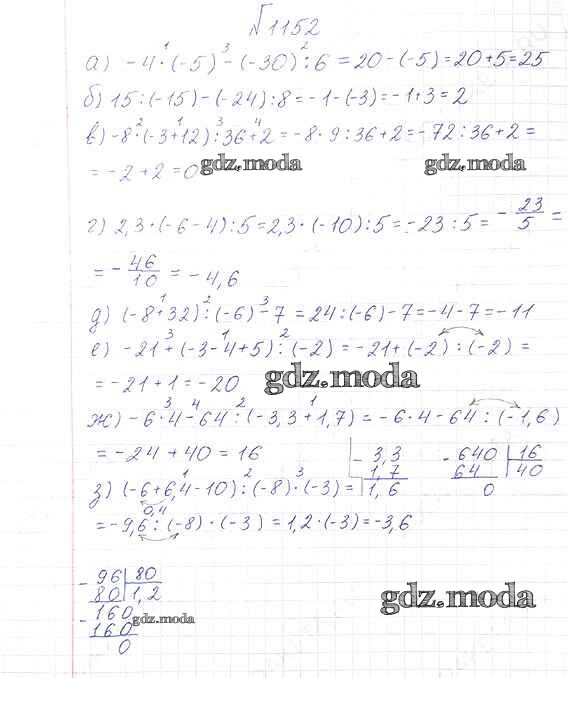 №1152
а) -4·(-5)-(-30):6=20-(-5)=20+5=25
б) 15:(-15)-(-24):8=-1-(-3)=-1+3=2
в) -8·(-3+12):36+2=-8·9:36+2=-72:36+2=
=-2+2=0
gdz.moda gdz.moda
г) 2,3·(-6-4):5=2,3·(-10):5=-23:5=-23/5=
=-46/10=-4,6
д) (-8+32):(-6)-7=24:(-6)-7=-4-7=-11
е) -21+(-3-4+5):(-2)=-21+(-2):(-2)=
=-21+1=-20
gdz.moda
ж) -6·4-64:(-3,3+1,7)=-6·4-64:(-1,6)
=-24+40=16
3,3
1,7
1,6
640 16
64 40
0
з) (-6+6,4-10):(-8)·(-3)=
0,4
=-9,6:(-8)·(-3)=1,2·(-3)=-3,6
96 80
80 1,2
160
160
0
gdz.moda
gdz.moda